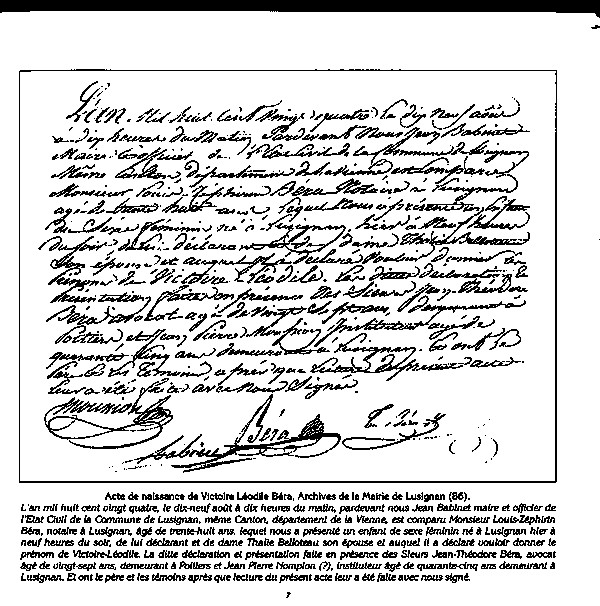 L'an mil huit cent vingt quatre le dix neuf août
à dix heures du matin Pardevant Nous Jean Babinet
Maire & officier de l'Etat Civil de la Commune de Lusignan
Même Canton, département de la Vienne, est comparu
Monsieur Louis Zéphirin Béra Notaire à Lusignan
agé de trente huit ans, lequel Nous a présenté un enfant
du Sexe féminin né à Lusignan, hier à Neuf heures
du soir de lui déclarant et de dame Thalie Belloteau
Son épouse et auquel il a déclaré Vouloir donner le
prénom de Victoire Léodile. La ditte déclaration &
présentation faite en présence des Sieurs Jean Théodore
Béra avocat agé de vingt sept ans, demeurant à
Poitiers, et Jean Pierre Instituteur agé de
quarante cinq ans demeurant à Lusignan. Et ont le
père et les témoins, après que lecture du présent acte
leur a été faite avec Nous Signé.
Béra
Babinet
Acte de naissance de Victoire Léodile Béra, Archives de la Mairie de Lusignan (86).
L'an mil huit cent vingt quatre, le dix-neuf août à dix heures du matin, pardevant nous Jean Babinet maire et officier de
l'Etat Civil de la Commune de Lusignan, même Canton, département de la Vienne, est comparu Monsieur Louis-Zéphirin
Béra, notaire à Lusignan, âgé de trente-huit ans, lequel nous a présenté un enfant de sexe féminin né à Lusignan hier à
neuf heures du soir, de lui déclarant et de dame Thalie Belloteau son épouse et auquel il a déclaré vouloir donner le
prénom de Victoire-Léodile. La ditte déclaration et présentation faite en présence des Sieurs Jean-Théodore Béra, avocat
âgé de vingt-sept ans, demeurant à Poitiers et Jean Pierre Nompion (?), instituteur âgé de quarante-cinq ans demeurant à
Lusignan. Et ont le père et les témoins après que lecture du présent acte leur a été faite avec nous signé.